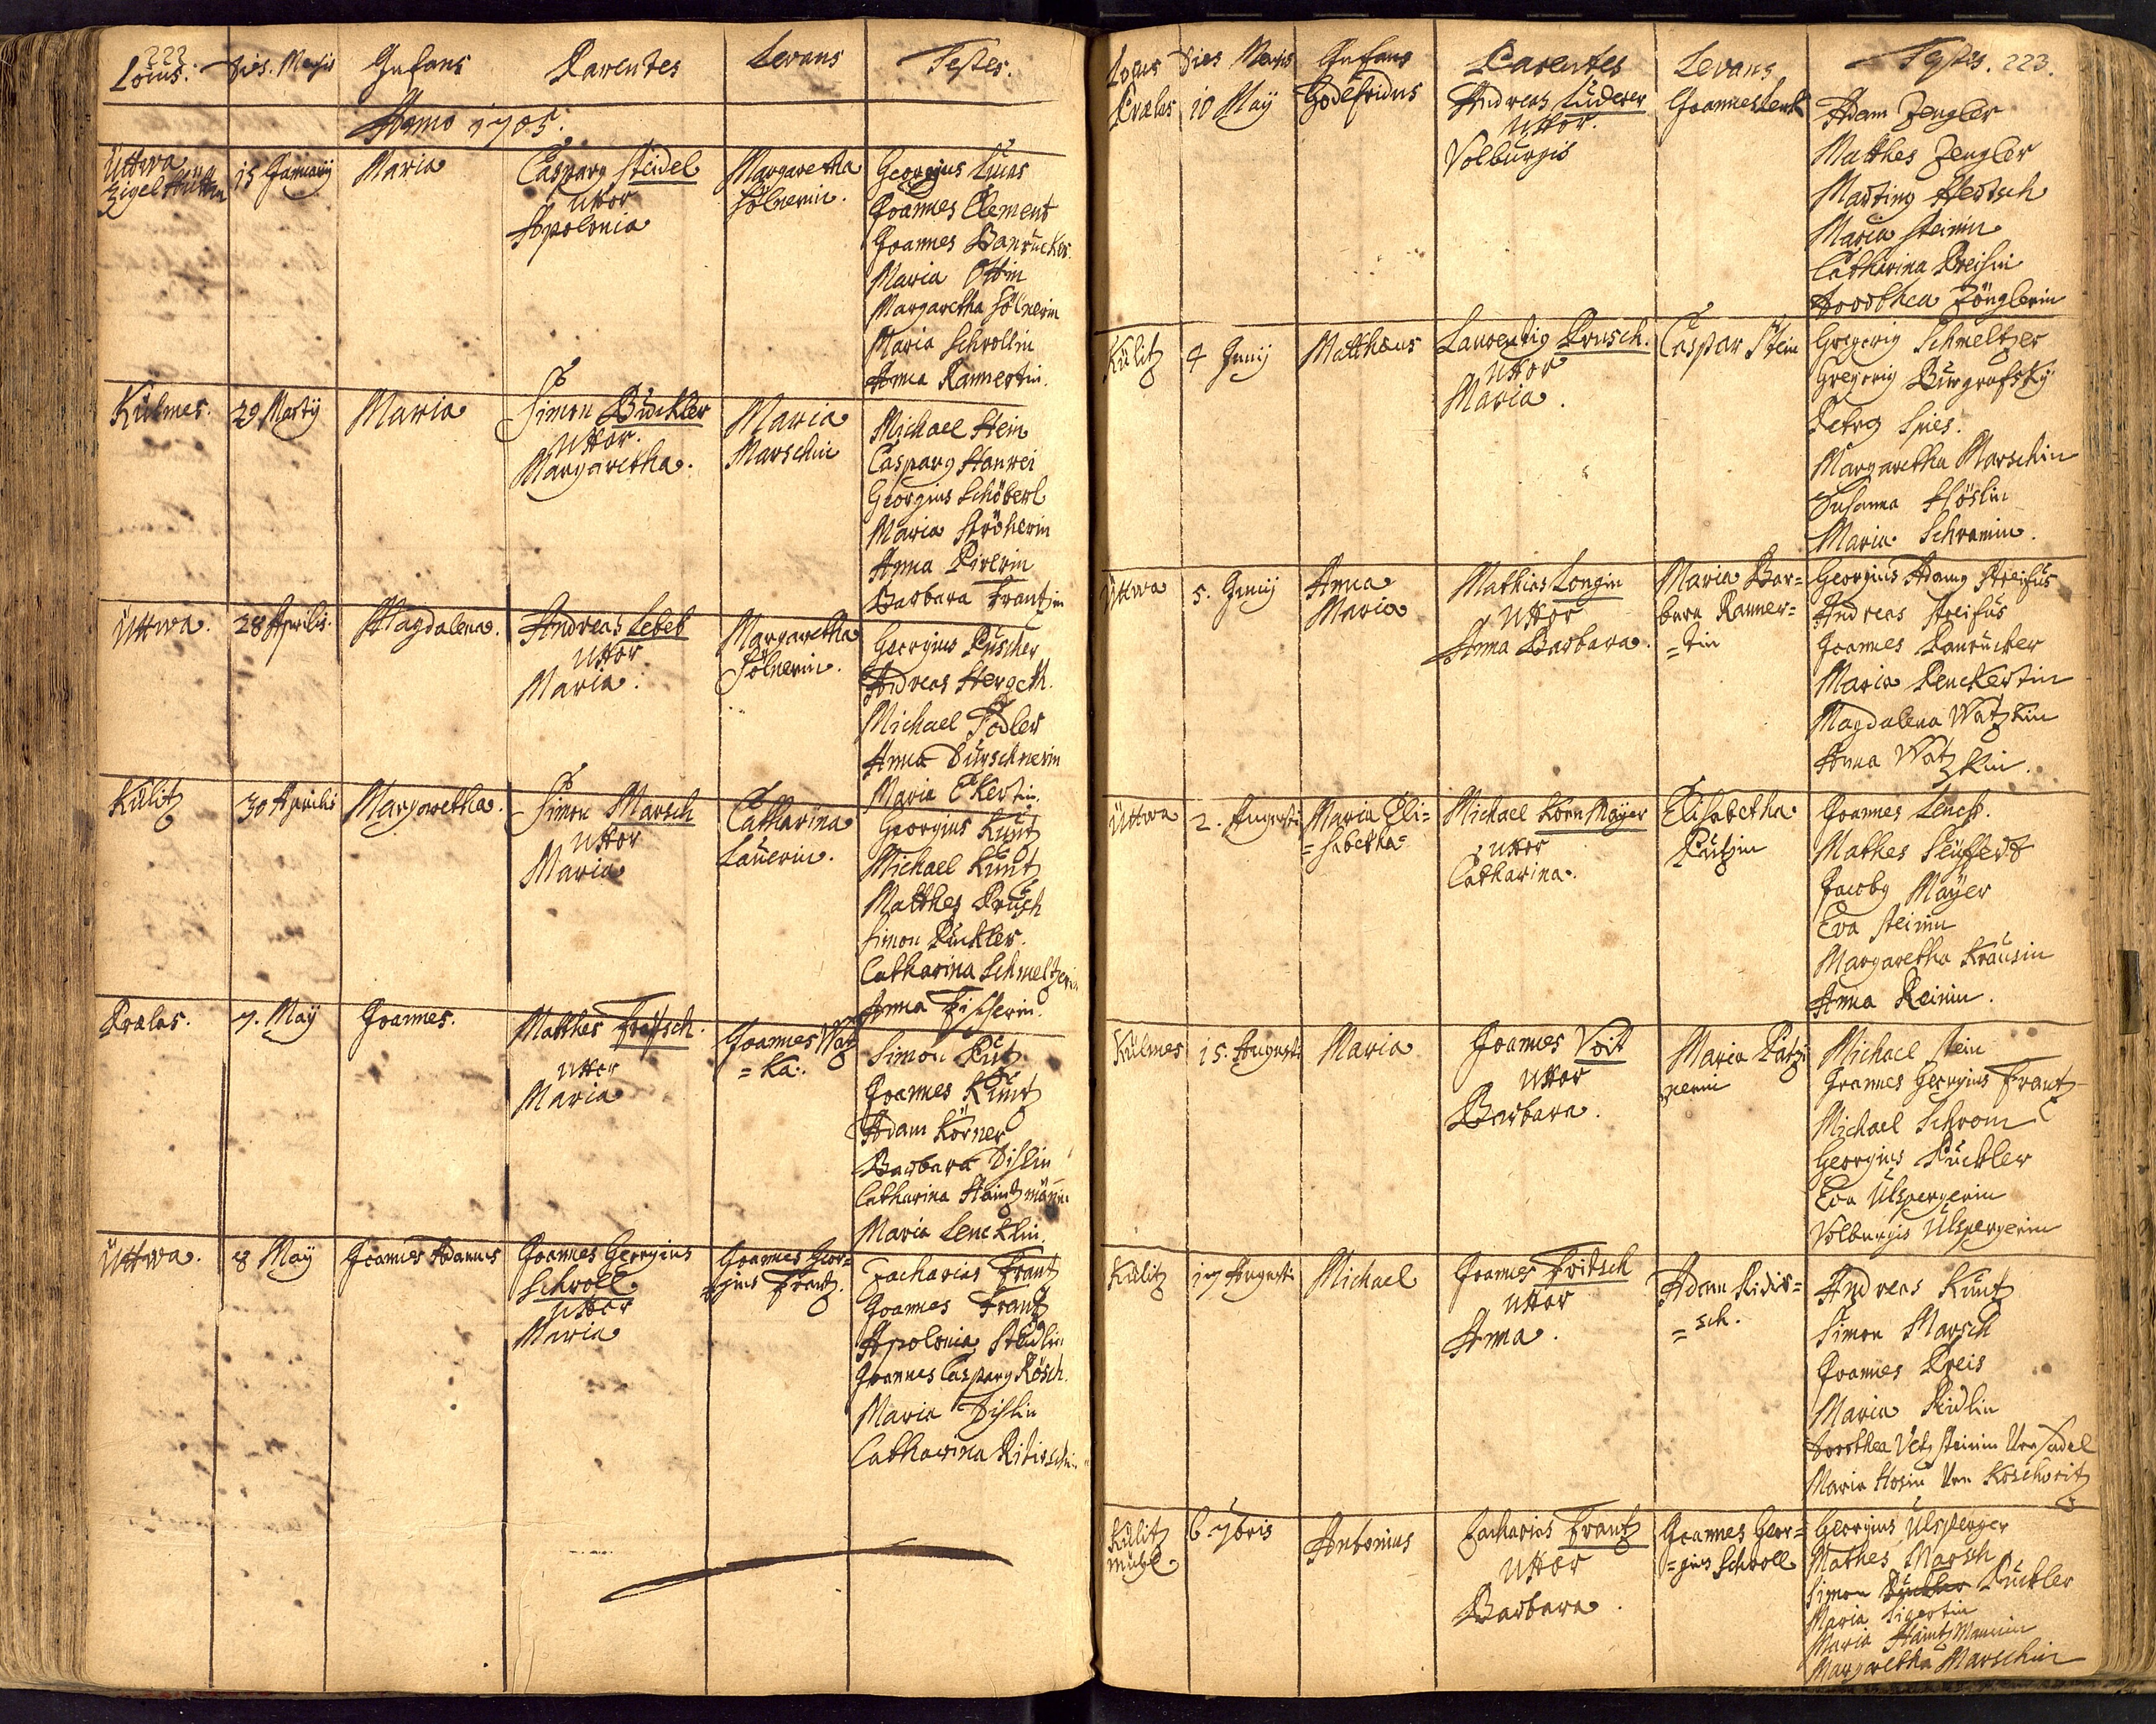 222.
Locus. Dies. Mensis Infans Parentes Levans Testes.
Anno 1705.
Üttwa
Zigel Hütten
15 January
Maria
Casparg Steidel
Uxor
Apolonia
Margaretha
Sölnerin.
Georgius Lucas
Joannes Clement
Joannes Banrucker
Maria Ottin
Margaretha Sölnerin
Maria Schrollin
Anna Rannertin.
Külmes.
29 Martÿ
Maria
Simon Bückler
Uxor.
Margaretha.
Maria
Marschin
Michael Stein
Casparg Hanrei
Georgius Schöberl
Maria Ströherin
Anna Pirerin
Barbara Frantzin
Üttwa.
28 Aprilis.
Magdalena.
Andreas Lebet
Uxor
Maria.
Margaretha
Sölnerin.
Georgius Püscher
Andreas Hergeth.
Michael Todler
Anna Dürschnerin
Maria Ekertin.
Külitz
30 Aprilis
Margaretha.
Simon Marsch
Uxor
Maria
Catharina
Lauerin.
Georgius Kuntz
Michael Kuntz
Matthes Prusch
Simon Puckler.
Catharina Schmeltzerin
Anna Fischerin.
Prales.
7. Maÿ
Joannes.
Matthes Fritsch.
Uxor
Maria
Joannes Watz
=ka.
Simon Putz
Joannes Kuntz
Adam Körner
Barbara Dislin
Catharina Haintzmänin
Maria Lencklin.
Üttwa.
8 Maÿ
Joannes Adamus
Joannes Georgius
Schroll
Uxor
Maria
Joannes Geor=
gius Frantz.
Zacharias Frantz
Joannes Frantz
Apolonia Steidlin
Joannes Casparg Rösch.
Maria Dislin
Catharina Ritirschin
Locus Dies Mensis Infans Parentes Levans Testes. 223.
Prales
10 Maÿ
Godefridus
Andreas Luderer
Uxor.
Volburgis
Joannes Lenk
Adam Zengler
Matthes Zengler
Marting Hertsch
Maria Steinin
Catharina Preisin
Dorothea Zönglerin
Külitz
4 Junij
Matthaeus
Laurentig Prusch.
Uxor
Maria.
Caspar Stein
Gregorig Schmeltzer
Gregorig Burgrafskÿ
Petrg Spies.
Margaretha Marschin
Susanna Höslin
Maria Schramin.
Üttwa
5. Junij
Anna
Maria
Mathias Longin
Uxor
Anna Barbara.
Maria Bar=
bara Ranner=
=tin
Georgius Adamg Streifus
Andreas Streifus
Joannes Banrucker
Maria Renckertin
Magdalena Watzkin
Anna Watzkin.
Üttwa
2. Augusti
Maria Eli=
=sabetha
Michael Korn Maÿer
Uxor
Catharina.
Elisabetha
Putzin
Joannes Lenck.
Mathes Seuffert
Jacobg Maÿer
Eva Steinin
Margaretha Krausin
Anna Reinin.
Külmes
15. Augusti
Maria
Joannes Voit
Uxor
Barbara.
Maria Patzi
nerin
Michael Stein
Joannes Georgius Frantz
Michael Schrom
Georgius Puckler
Eva Ulspergerin
Volburgis Ulspergerin
Külitz
17 Augusti
Michael
Joannes Fritsch
Uxor
Anna.
Adam Ridir=
=sch.
Andreas Kuntz
Simon Marsch
Joannes Preis
Maria Ridlin
Dorothea Vetzsteinin Von Sadel
Maria Hosin Von Koschwitz
Külitz
mühl
6 7bris
Antonius
Zacharias Frantz
Uxor
Barbara.
Joannes Geor=
=gius Schroll
Georgius Ulsperger
Mathes Marsch
Simon Puckler Puckler
Maria Sigertin
Maria Haintzmannin
Margaretha Marschin